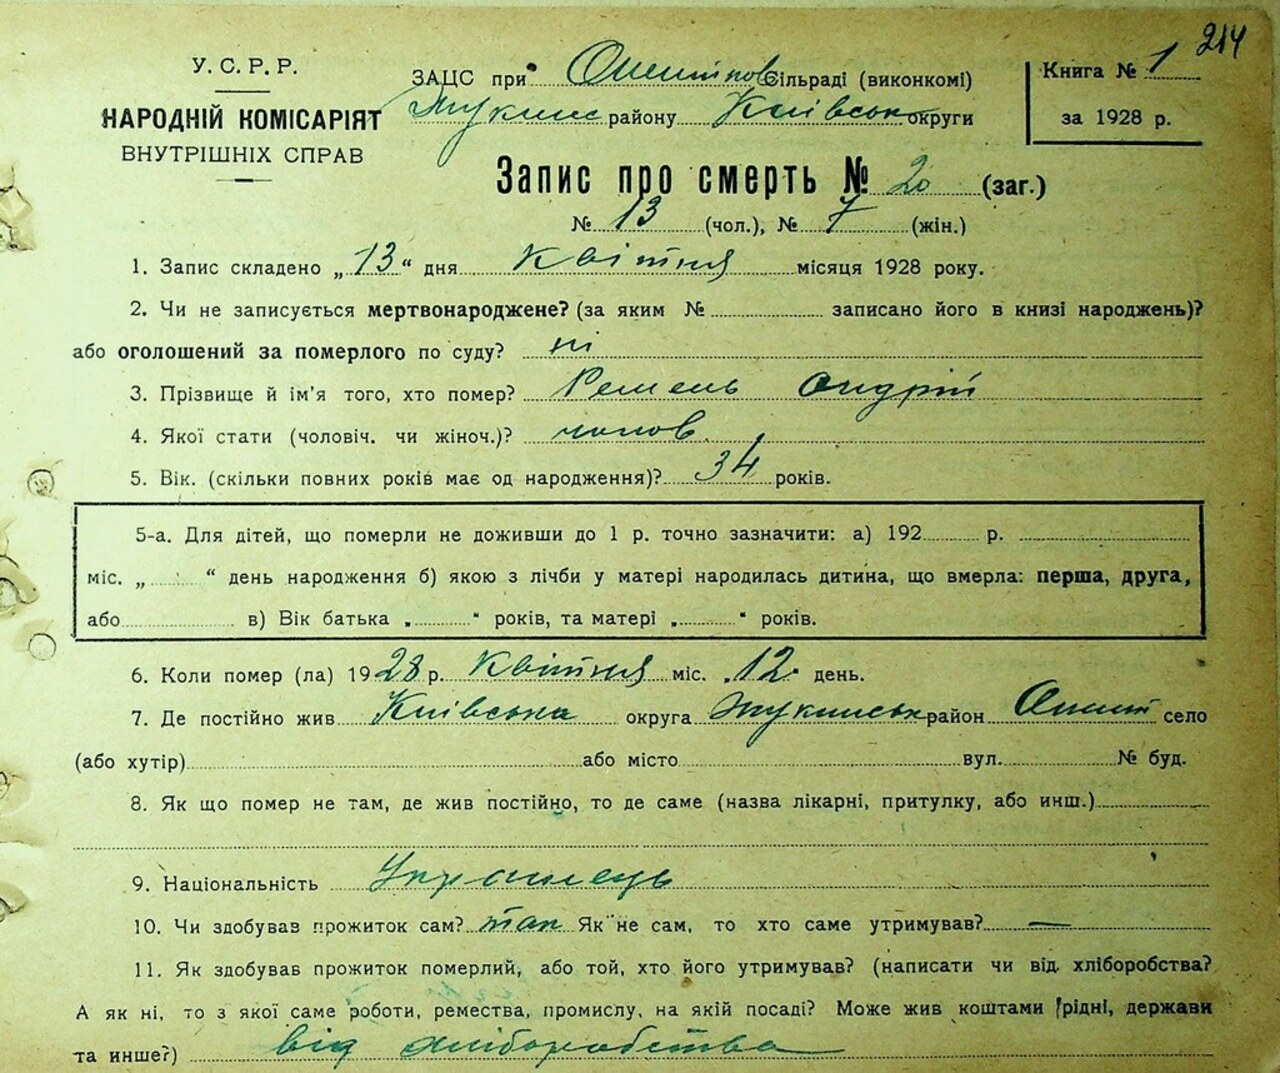 214
У. С. Р. Р.
НАРОДНІЙ КОМІСАРІЯТ
ВНУТРІШНІХ СПРАВ
ЗАЦС при Сільраді (виконкомі)
району Київськ округи
Книга № 1
за 1928 р.
Запис про смерть № 20 (заг.)
№ 13 (чол.), № 7 (жін.)
1. Запис складено „13“ дня квітня місяця 1928 року.
2. Чи не записується мертвонароджене? (за яким № записано його в книзі народжень)?
або оголошений за померлого по суду? ні
3. Прізвище й ім'я того, хто помер? Ремень Андрій
4. Якої стати (чоловіч. чи жіноч.)? чолов.
5. Вік. (скільки повних років має од народження)? 34 років.
5-а. Для дітей, що померли не доживши до 1 р. точно зазначити: а) 192 р.
міс. „ “ день народження б) якою з лічби у матері народилась дитина, що вмерла: перша, друга,
або в) Вік батька „ “ років, та матері „ “ років.
6. Коли помер (ла) 1928 р. квітня міс. 12 день.
7. Де постійно жив Київська округа район село
(або хутір) або місто вул. № буд.
8. Як що помер не там, де жив постійно, то де саме (назва лікарні, притулку, або инш.)
9. Національність Українець
10. Чи здобував прожиток сам? так Як не сам, то хто саме утримував? —
11. Як здобував прожиток померлий, або той, хто його утримував? (написати чи від хліборобства?
А як ні, то з якої саме роботи, ремества, промислу, на якій посаді? Може жив коштами рідні, держави
та инше?) від хліборобства